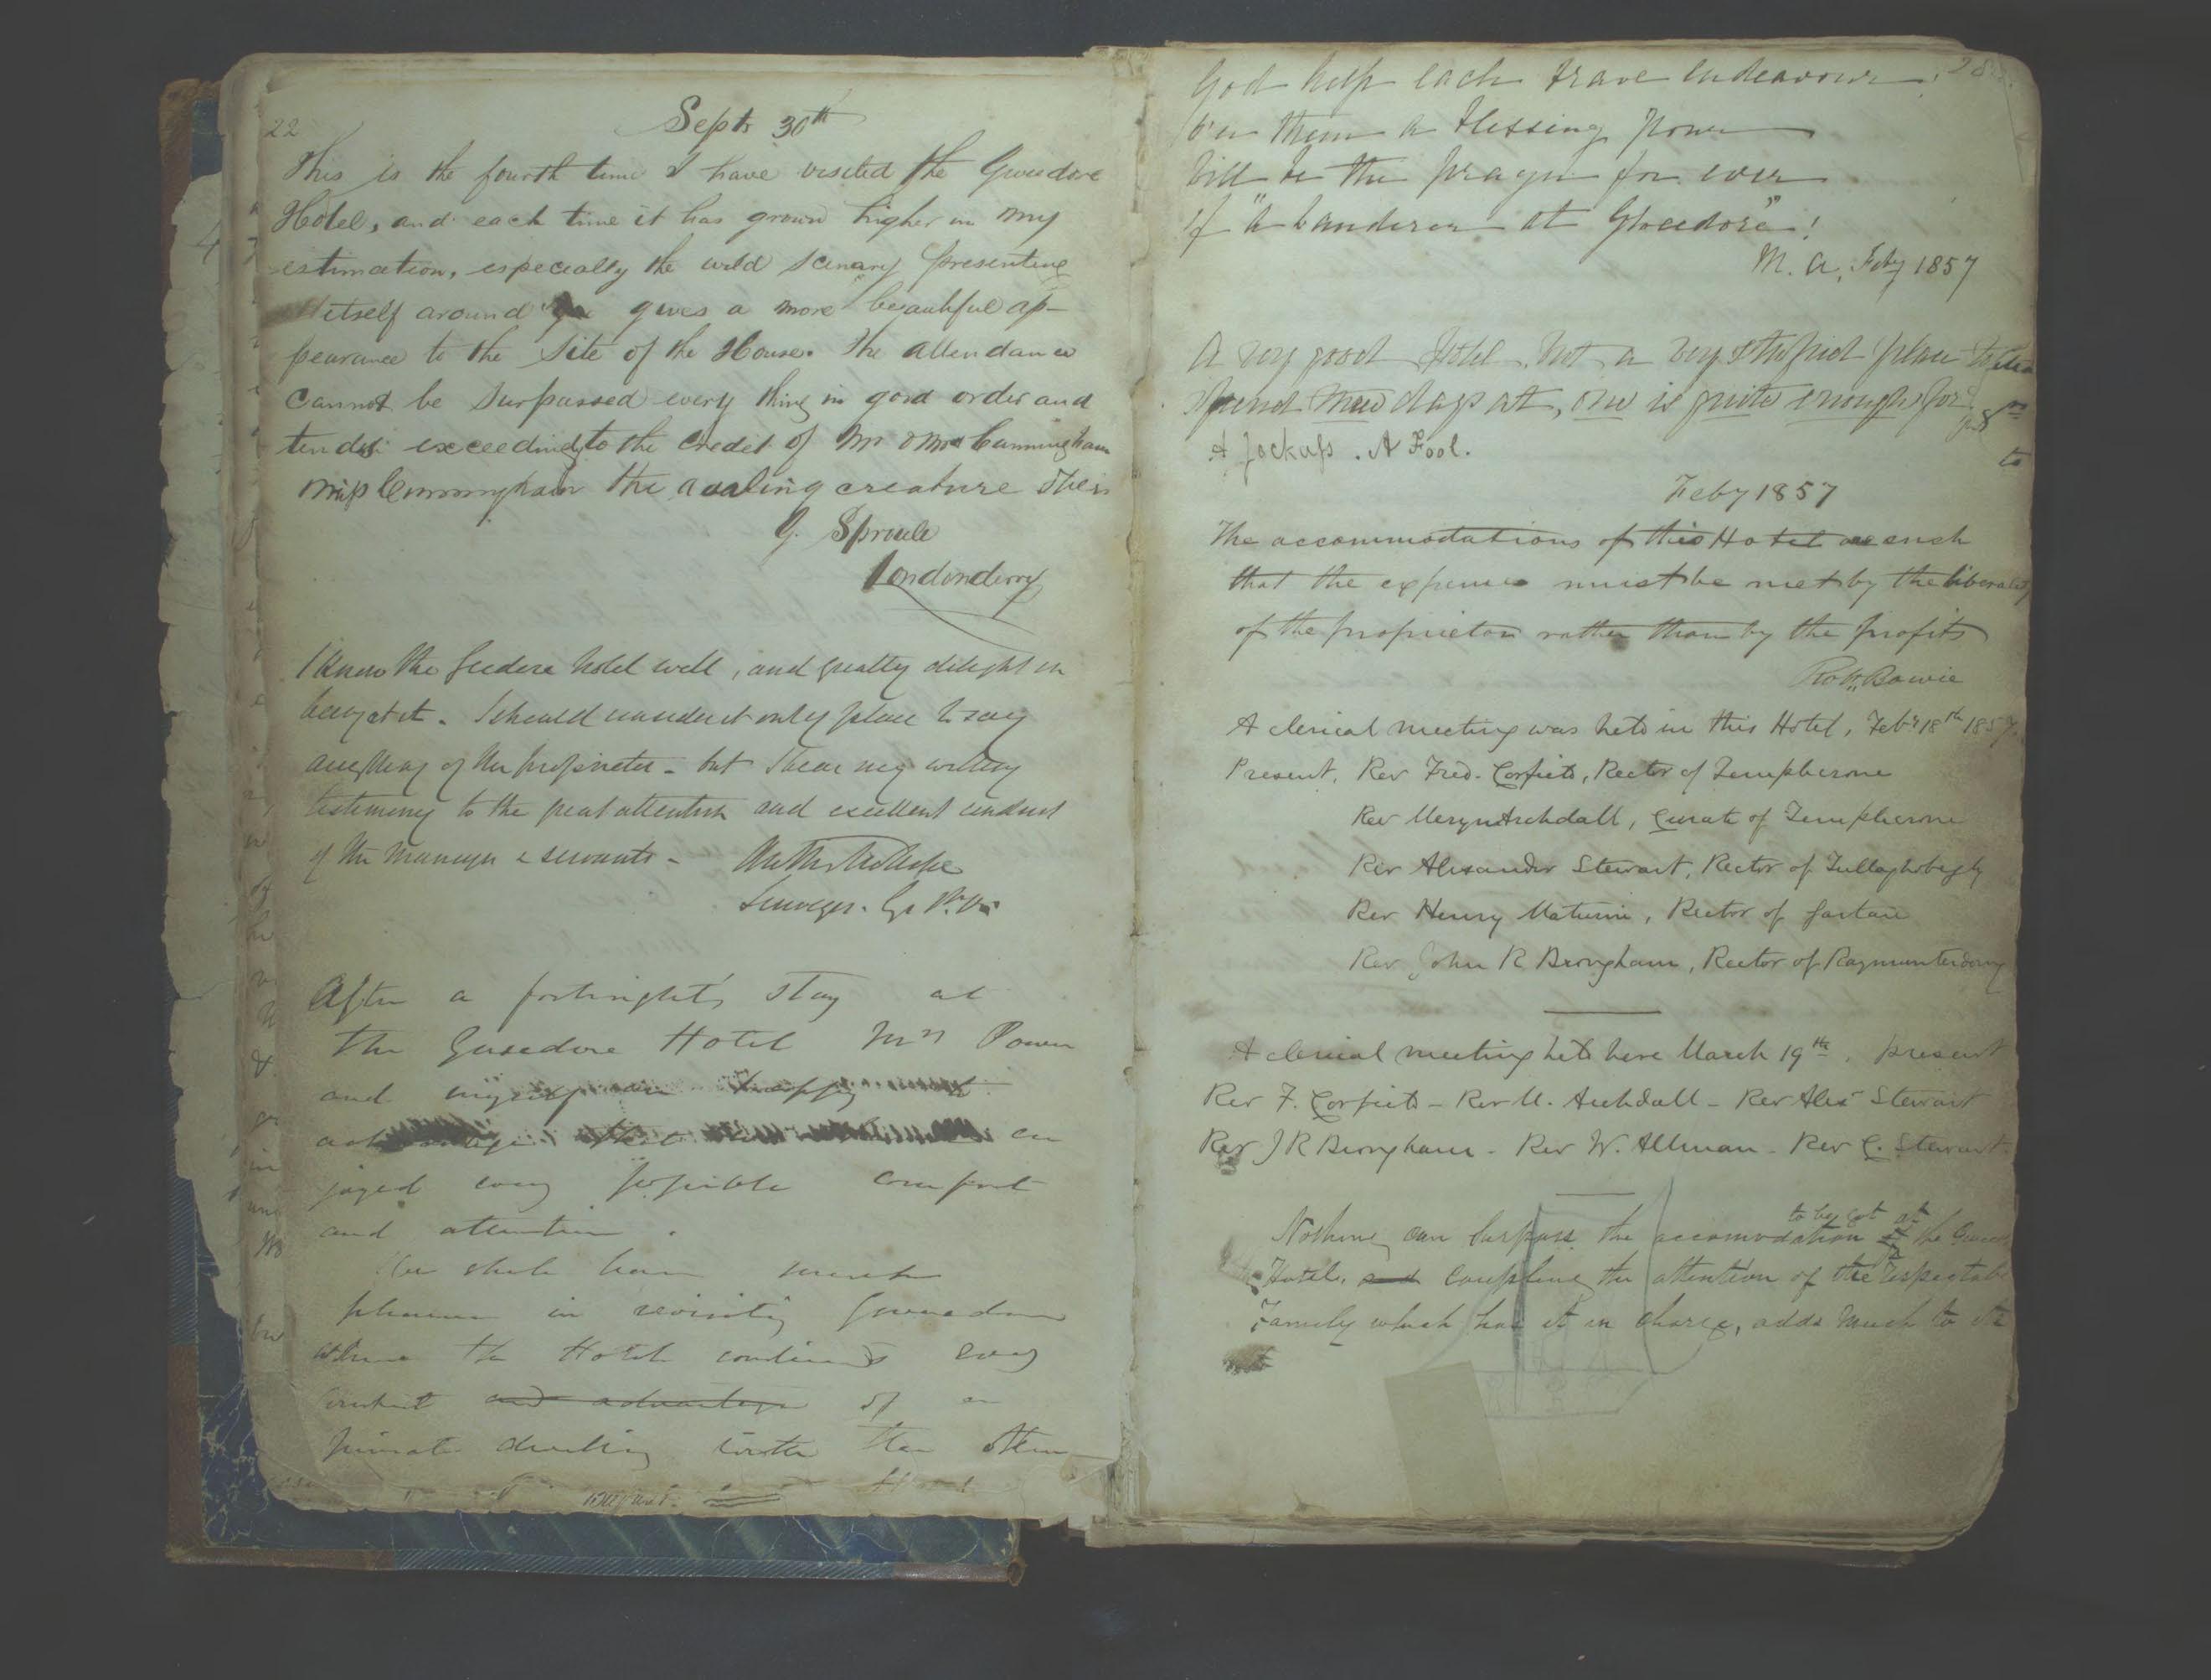 22
Septr 30th
This is the fourth time I have visited the Gweedore
Hotel, and each time it has grown higher in my
estimation, especially the wild scenary presenting
itself around gives a more beautiful ap-
pearance to the site of the House. The attendance
cannot be surpassed every thing in good order and
tends exceedingly to the credit of Mr & Mrs Cunningham
Miss Cunningham the creature She is
G. Sproule
Londonderry
I know the Guedore hotel well, and greatly delight in
being at it. I should consider it only place to say
anything of the proprietor - but I bear my willing
testimony to the great attention and excellent conduct
of the manager & servants -
After a fortnight's stay at
the Gweedore Hotel Mrs Power
and myself are happy to
acknowledge that en
joyed every possible comfort
and attention.
We shall have much
pleasure in revisiting Gweedore
where the Hotel combines every
comfort and advantage of a
private dwelling with the other
God help each brave endeavour!
Give them a blessing power
Will be the prayer for ever
Of "a Wanderer at Gweedore"!
M. A. Feby 1857
A very good Hotel but a very stupid place to
spend two days at, one is quite enough for
A Jackass. A Fool.
to
Feby 1857
The accommodations of this Hotel are such
that the expenses must be met by the liberality
of the proprietor rather than by the profits
Robt. Bowie
A clerical meeting was held in this Hotel, Feby 18th 1857.
Present, Rev Fred. Corfield, Rector of Templecrone
Rev Mervyn Archdall, Curate of Templecrone
Rev Alexander Stewart, Rector of Tullaghobegly
Rev Henry Maturin, Rector of Gartan
Rev John R Brougham, Rector of Raymunterdoney
A clerical meeting held here March 19th, present
Rev F. Corfield - Rev M. Archdall - Rev Alexr Stewart
Rev J R Brougham - Rev W. Allman - Rev C. Stewart.
to be got at
Nothing can surpass the accomodation of the
Hotel, and coupling the attention of the respectable
Family which has it in charge, adds much to its